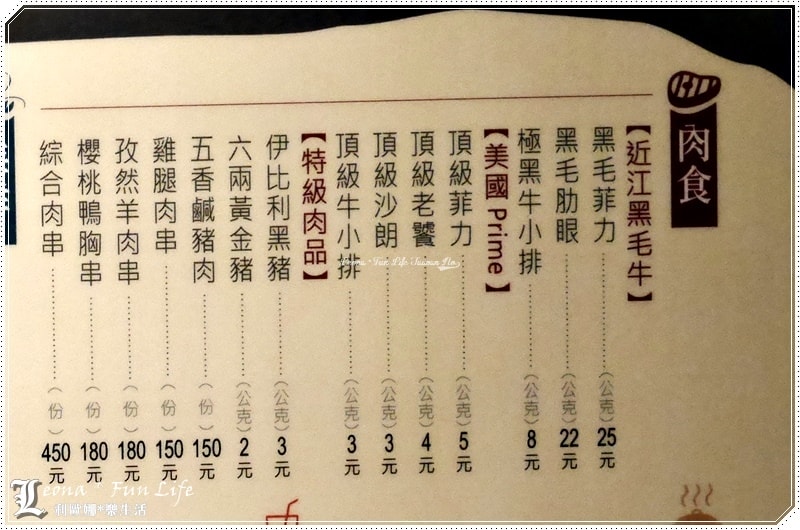 肉食
【近江黑毛牛】
黑毛菲力(公克)25元
黑毛肋眼(公克)22元
極黑牛小排(公克)8元
【美國Prime】
頂級菲力(公克)5元
頂級老饕(公克)4元
頂級沙朗(公克)3元
頂級牛小排(公克)3元
【特級肉品】
伊比利黑豬(公克)3元
六兩黃金豬(公克)2元
五香鹹豬肉(份)150元
雞腿肉串(份)150元
孜然羊肉串(份)180元
櫻桃鴨胸串(份)180元
綜合肉串(份)450元
Leona * Fun Life
利歐娜*樂生活